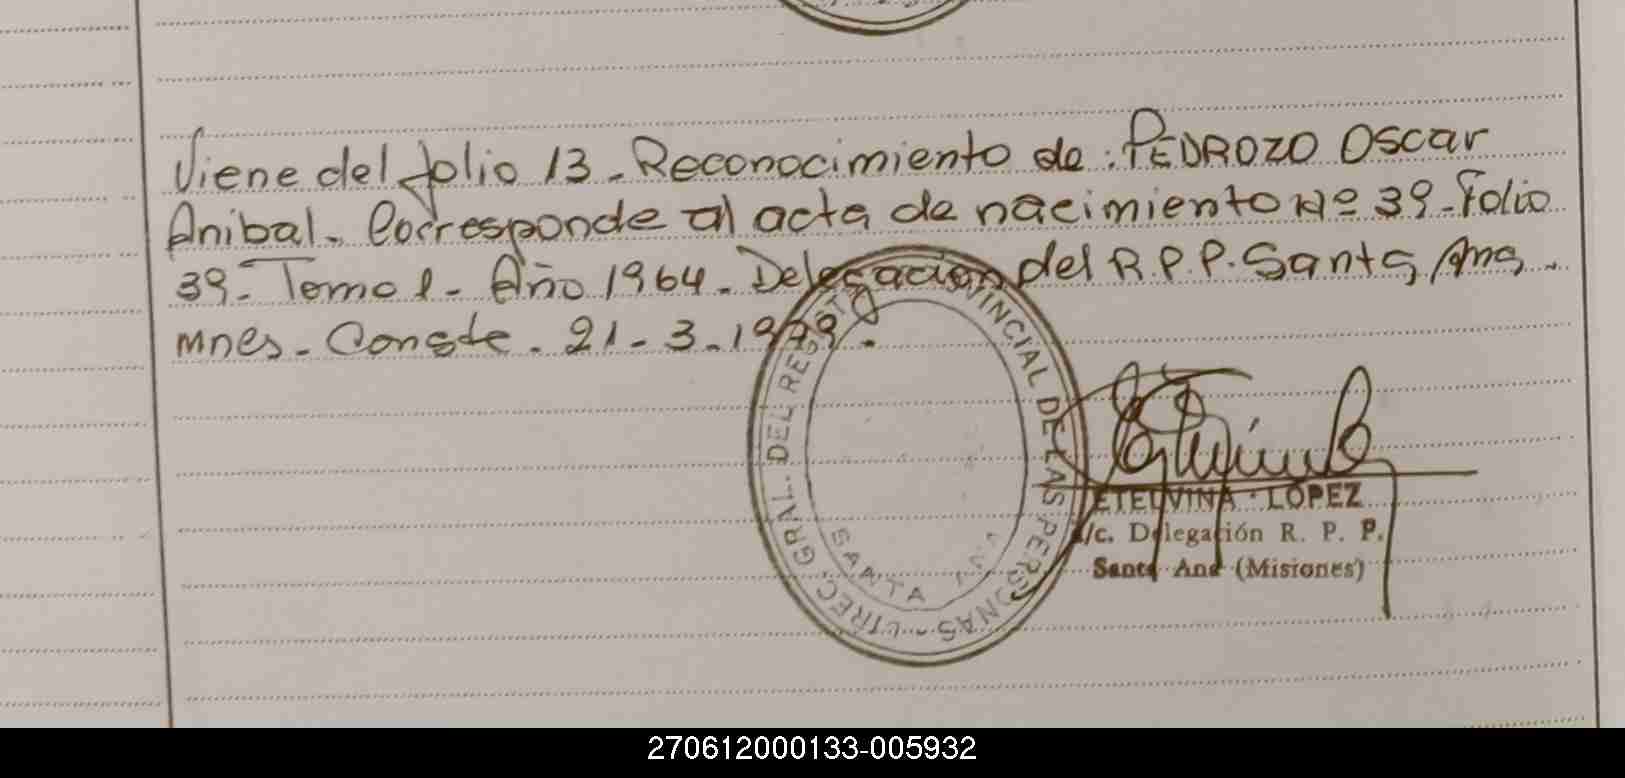 Viene del folio 13. Reconocimiento de: PEDROZO Oscar
Anibal. Corresponde al acta de nacimiento Nº 39. Folio
39. Tomo 1. Año 1964. Delegación del R.P.P. Santa Ana.
Mnes. Conste. 21-3.1979.
DIRECC GRAL. DEL REGISTRO PROVINCIAL DE LAS PERSONAS
SANTA ANA
ETELVINA LOPEZ
a/c. Delegación R. P. P.
Santa Ana (Misiones)
270612000133-005932